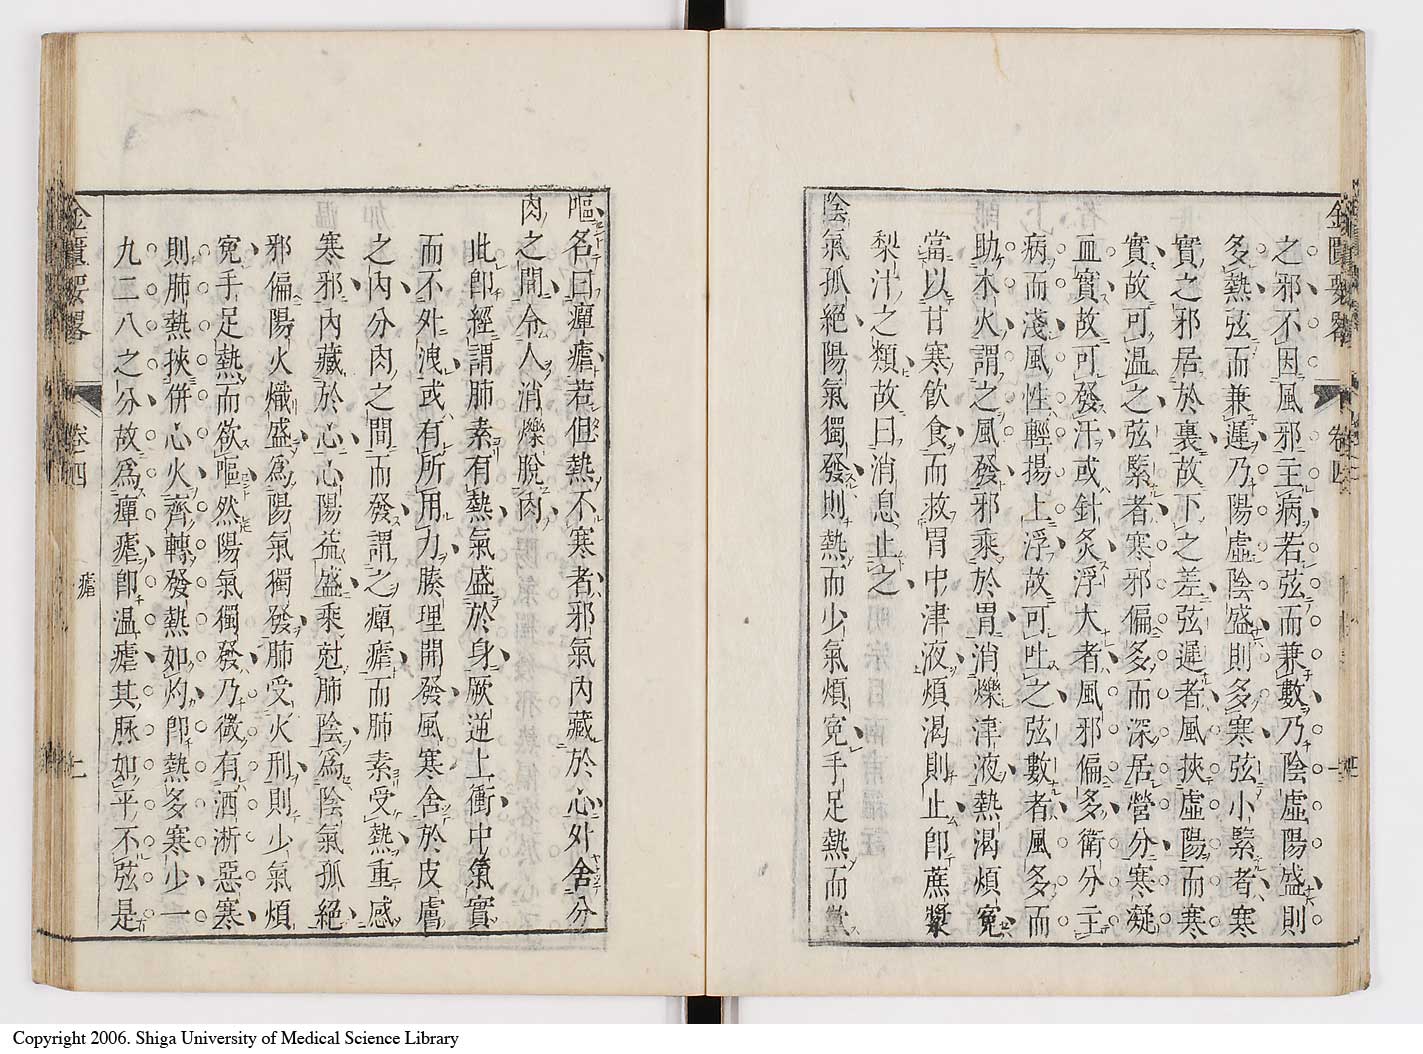 金匱要略 卷四
之邪不因風邪主病若弦而兼數乃陰虛陽盛則
多熱弦而兼遲乃陽虛陰盛則多寒弦小緊者寒
實之邪居於裏故下之差弦遲者風挾虛陽而寒
實故可溫之弦緊者寒邪偏多而深居營分寒凝
血實故可發汗或針灸浮大者風邪偏多衛分主
病而淺風性輕揚上浮故可吐之弦數者風多而
助木火謂之風發邪乘於胃消爍津液熱渴煩冤
當以甘寒飲食而救胃中津液煩渴則止卽蔗漿
梨汁之類故曰消息止之
陰氣孤絕陽氣獨發則熱而少氣煩冤手足熱而欲
嘔名曰癉瘧若但熱不寒者邪氣內藏於心外舍分
肉之間令人消爍脫肉
此卽經謂肺素有熱氣盛於身厥逆上衝中氣實
而不外洩或有所用力腠理開發風寒舍於皮膚
之內分肉之間而發謂之癉瘧而肺素受熱重感
寒邪內藏於心心陽益盛乘尅肺陰為陰氣孤絕
邪偏陽火熾盛為陽氣獨發肺受火刑則少氣煩
冤手足熱而欲嘔然陽氣獨發乃微有洒淅惡寒
則肺熱挾併心火齊轉發熱如灼卽熱多寒少一
九二八之分故為癉瘧卽溫瘧其脈如平不弦是
金匱要畧 卷四 瘧 二
Copyright 2006. Shiga University of Medical Science Library